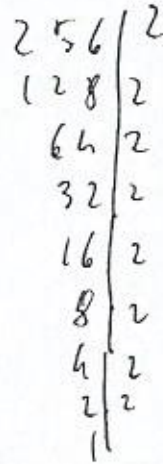 256 | 2
128 | 2
64 | 2
32 | 2
16 | 2
8 | 2
4 | 2
2 | 2
1 |